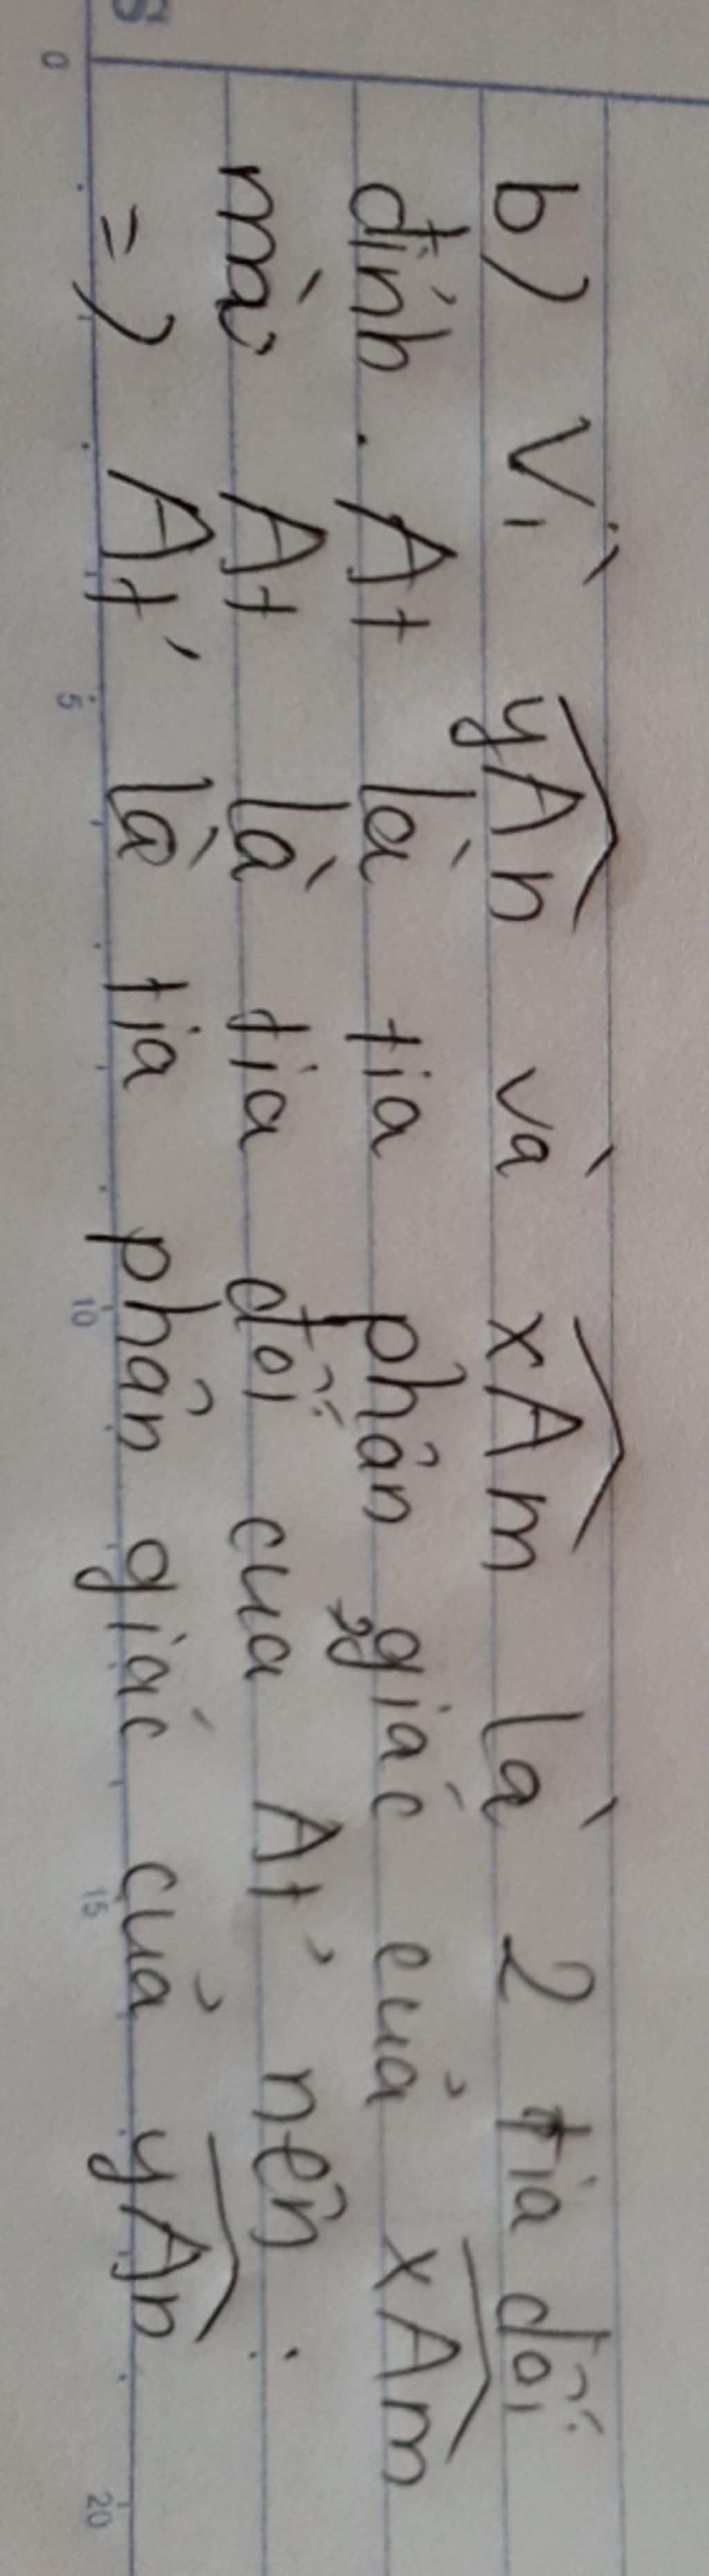 b) Vì yAn và xAm là 2 tia đối
đỉnh. At là tia phân giác của xAm
mà At là tia đối cua At' nên.
=) At' là tia phân giác của yAn
5
0
5
10
15
20